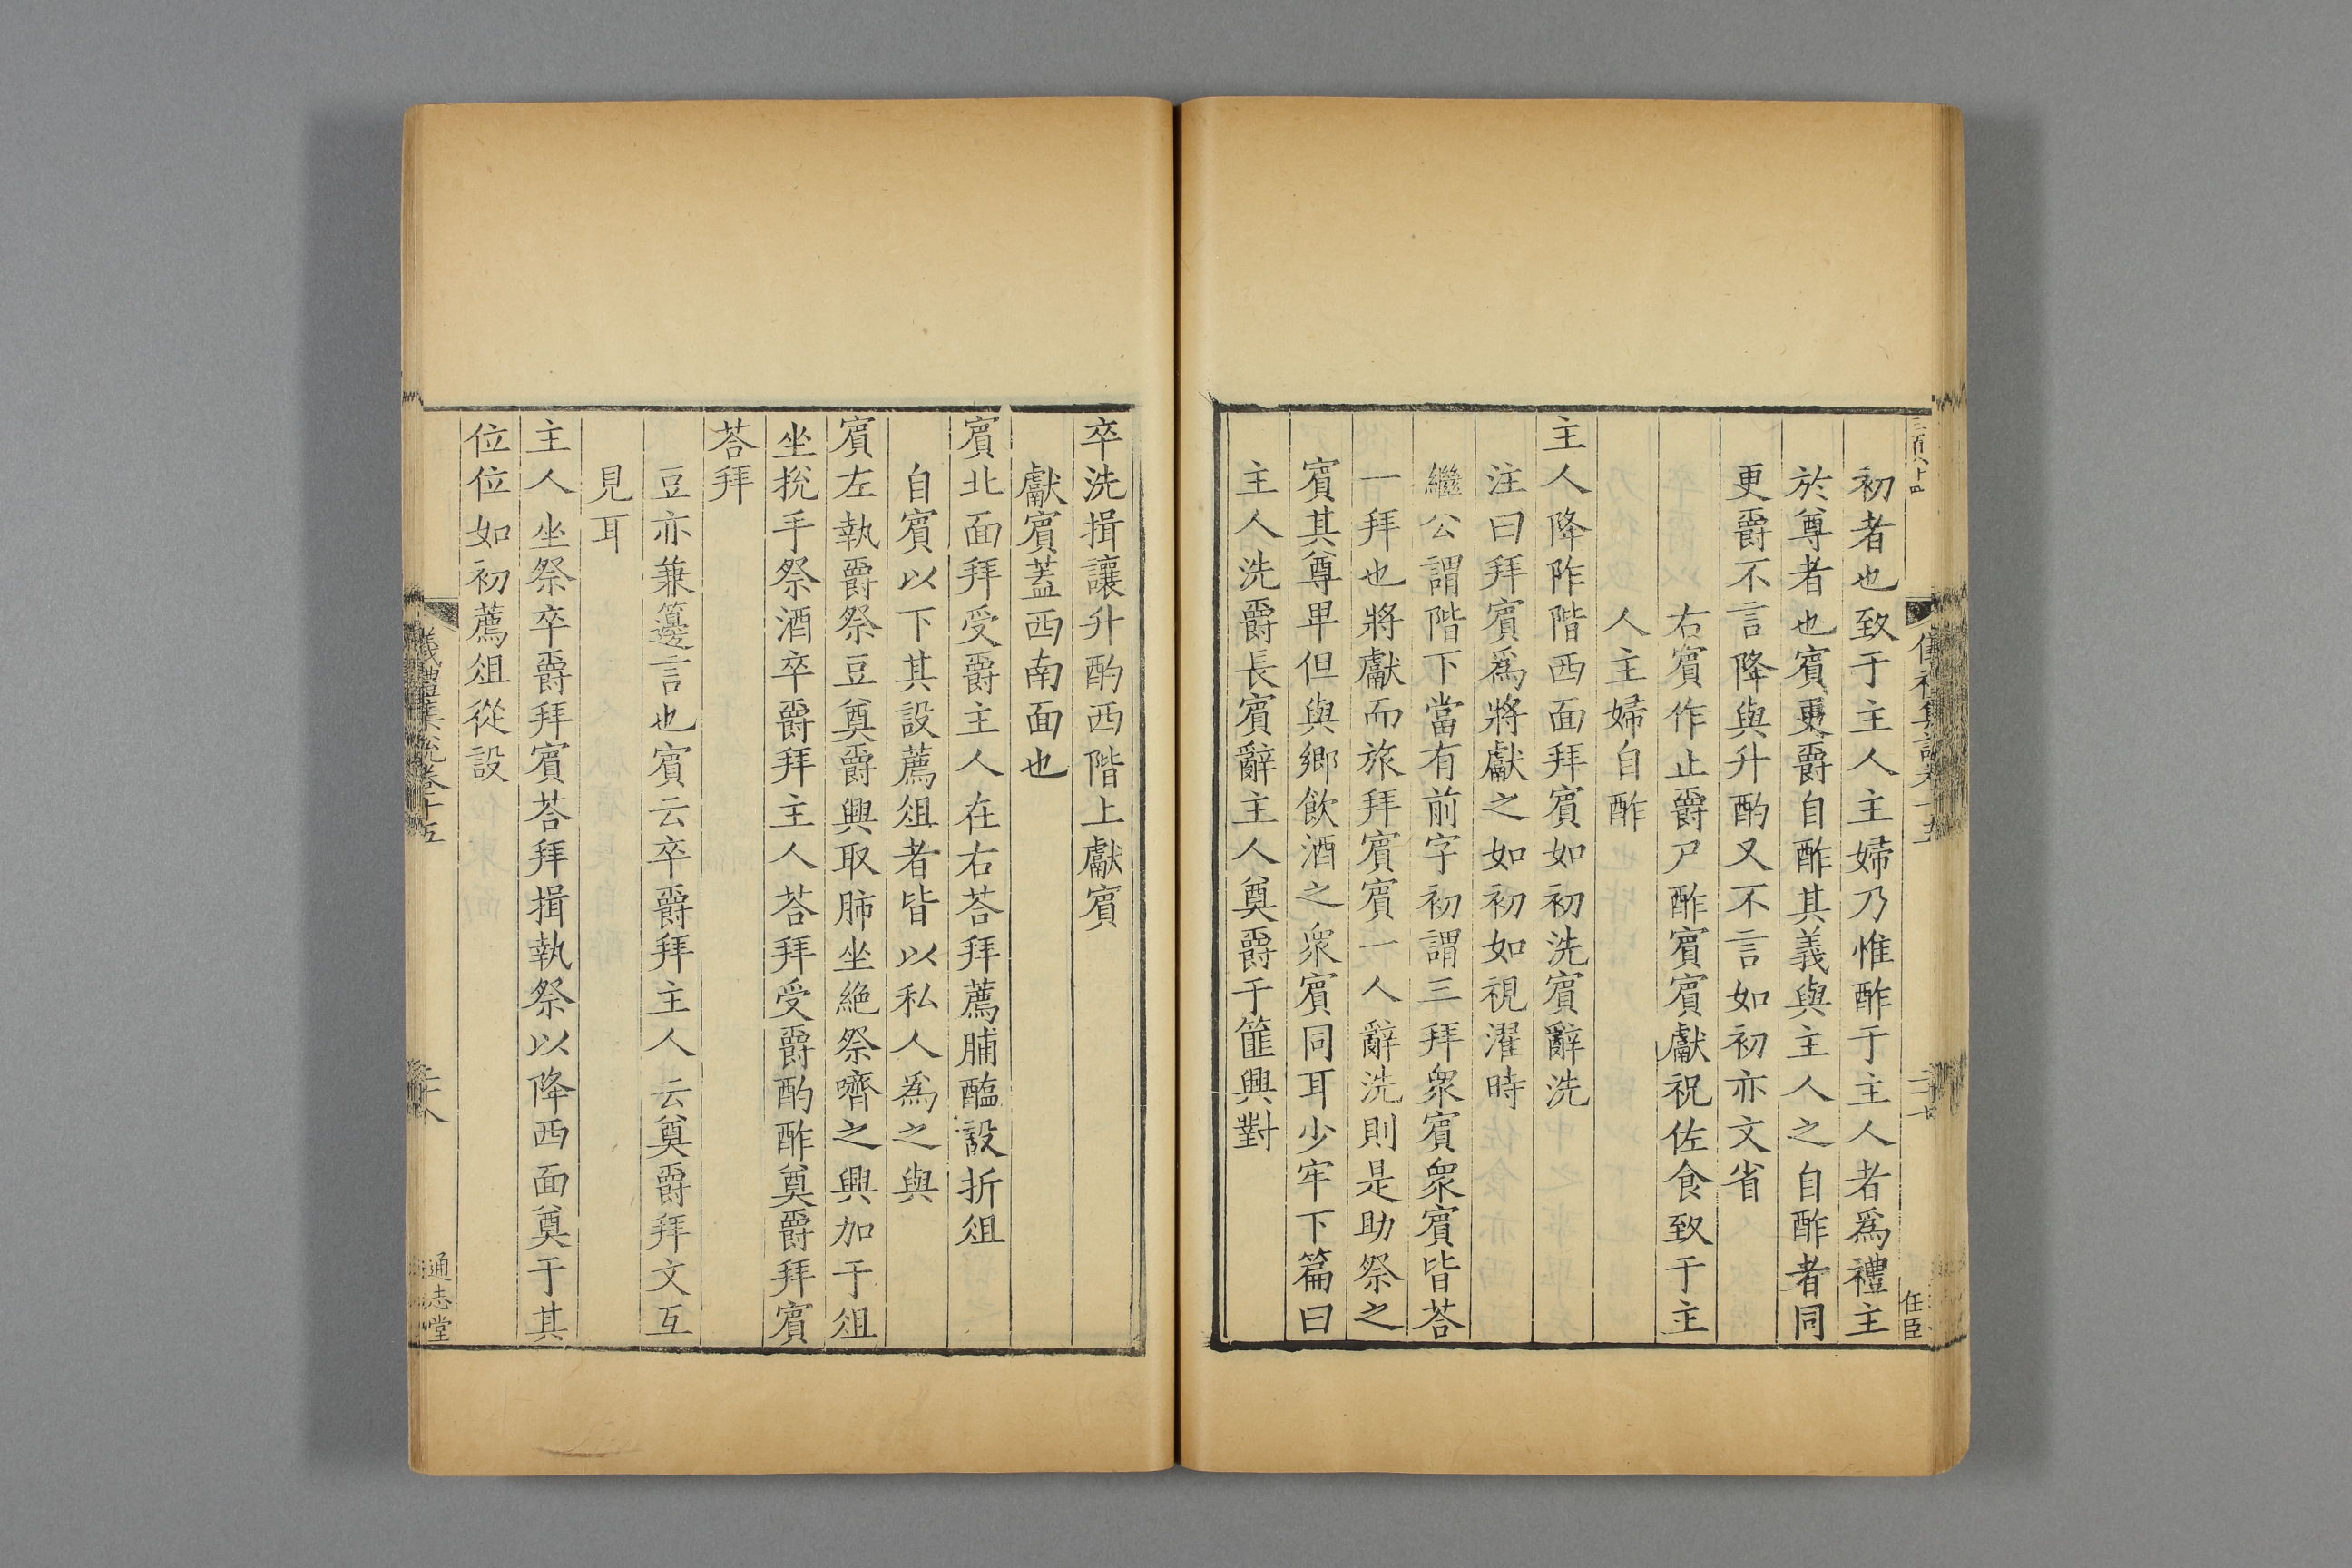 三百八十四
任臣
初者也致于主人主婦乃惟酢于主人者爲禮主
於尊者也賓更爵自酢其義與主人之自酢者同
更爵不言降與升酌又不言如初亦文省
右賓作止爵尸酢賓賓獻祝佐食致于主
人主婦自酢
主人降阼階西面拜賓如初洗賓辭洗
注曰拜賓爲將獻之如初如視濯時
繼公謂階下當有前字初謂三拜衆賓衆賓皆荅
一拜也將獻而旅拜賓賓一人辭洗則是助祭之
賓其尊卑但與鄉飲酒之衆賓同耳少牢下篇曰
主人洗爵長賓辭主人奠爵于篚興對
卒洗揖讓升酌西階上獻賓
獻賓蓋西南面也
賓北面拜受爵主人在右荅拜薦脯醢設折俎
自賓以下其設薦俎者皆以私人爲之與
賓左執爵祭豆奠爵興取肺坐絶祭嚌之興加于俎
坐挩手祭酒卒爵拜主人荅拜受爵酌酢奠爵拜賓
荅拜
豆亦兼籩言也賓云卒爵拜主人云奠爵拜文互
見耳
主人坐祭卒爵拜賓荅拜揖執祭以降西面奠于其
位位如初薦俎從設
儀禮集說卷十五
二十八
通志堂